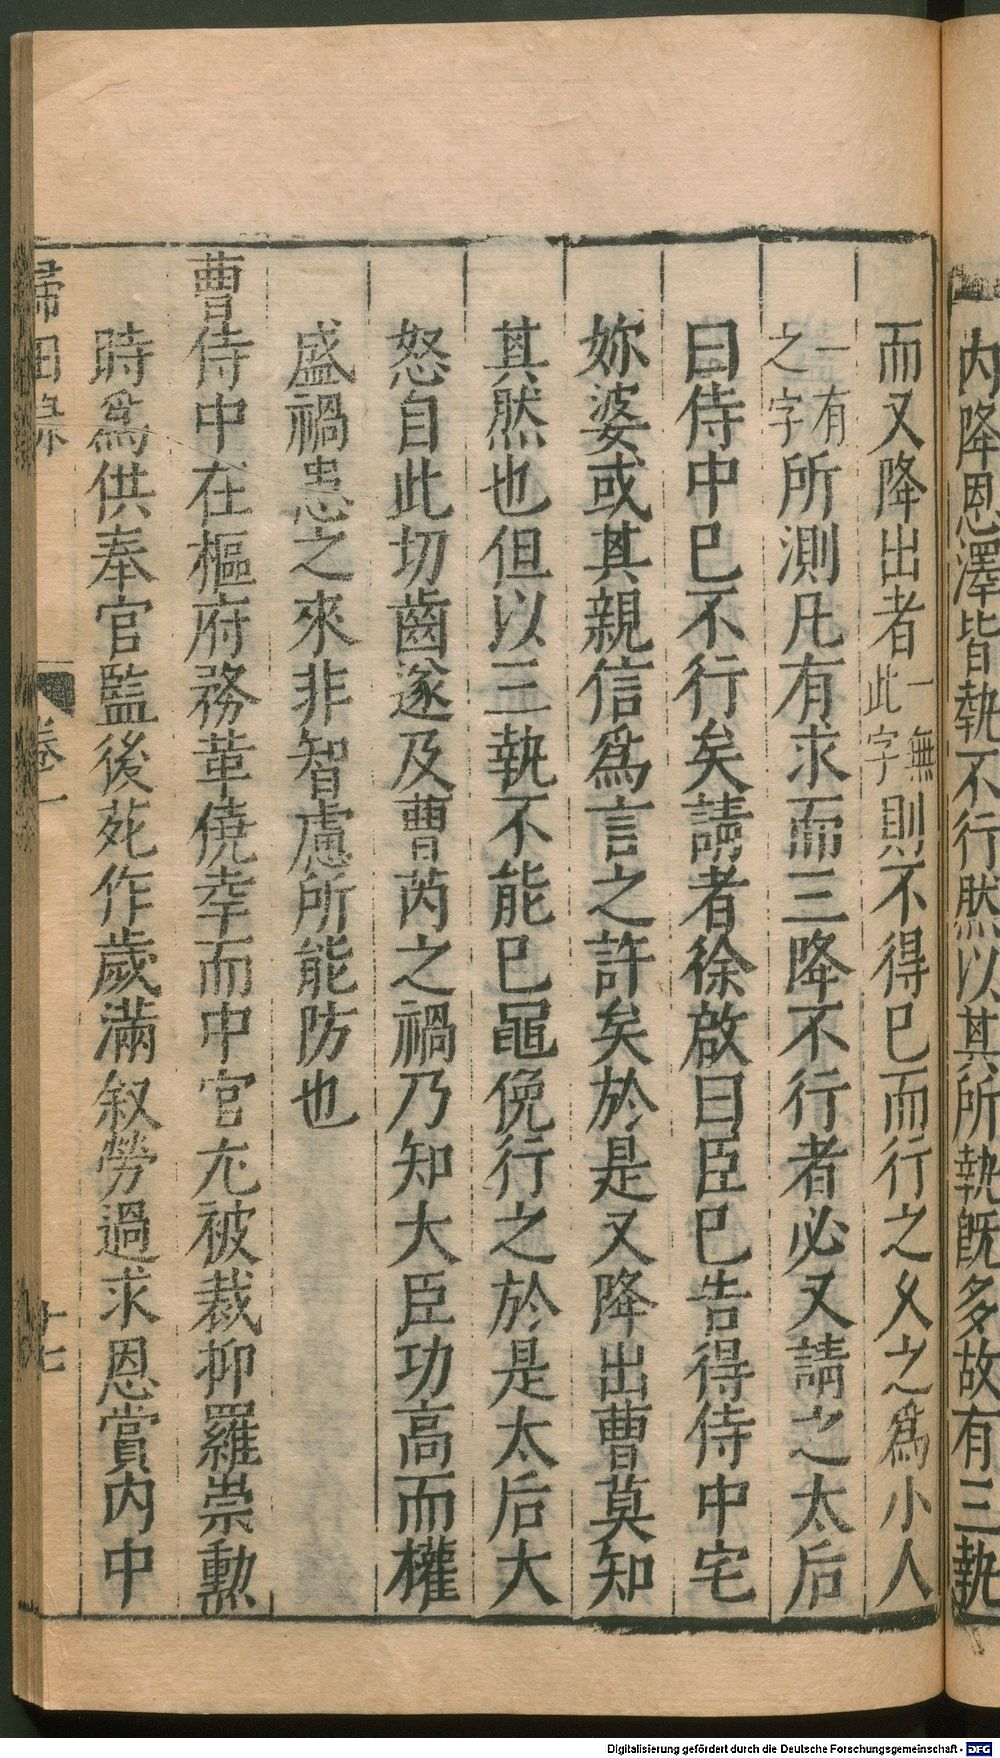 内降恩澤皆執不行然以其所執既多故有三執
而又降出者一無此字則不得已而行之乆之爲小人
一有之字所測凡有求而三降不行者必又請之太后
曰侍中已不行矣請者徐啟曰臣已告得侍中宅
妳婆或其親信爲言之許矣於是又降出曹莫知
其然也但以三執不能已黽俛行之於是太后大
怒自此切齒遂及曹芮之禍乃知大臣功高而權
盛禍患之來非智慮所能防也
曹侍中在樞府務革僥幸而中官尤被裁抑羅崇勳
時爲供奉官監後苑作歲滿叙勞過求恩賞内中
歸田录 卷一 十七
Digitalisierung gefördert durch die Deutsche Forschungsgemeinschaft - DFG